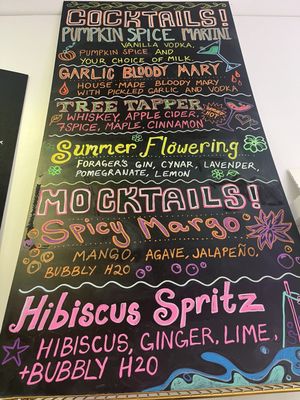 COCKTAILS!
PUMPKIN SPICE MARTINI
VANILLA VODKA,
PUMPKIN SPICE AND
YOUR CHOICE OF MILK.
GARLIC BLOODY MARY
HOUSE-MADE BLOODY MARY
WITH PICKLED GARLIC AND VODKA
TREE TAPPER
WHISKEY, APPLE CIDER,
7SPICE, MAPLE, CINNAMON
Summer Flowering
FORAGER'S GIN, CYNAR, LAVENDER,
POMEGRANATE, LEMON
MOCKTAILS!
Spicy Margo
MANGO, AGAVE, JALAPEÑO,
BUBBLY H2O
Hibiscus Spritz
HIBISCUS, GINGER, LIME,
+BUBBLY H2O